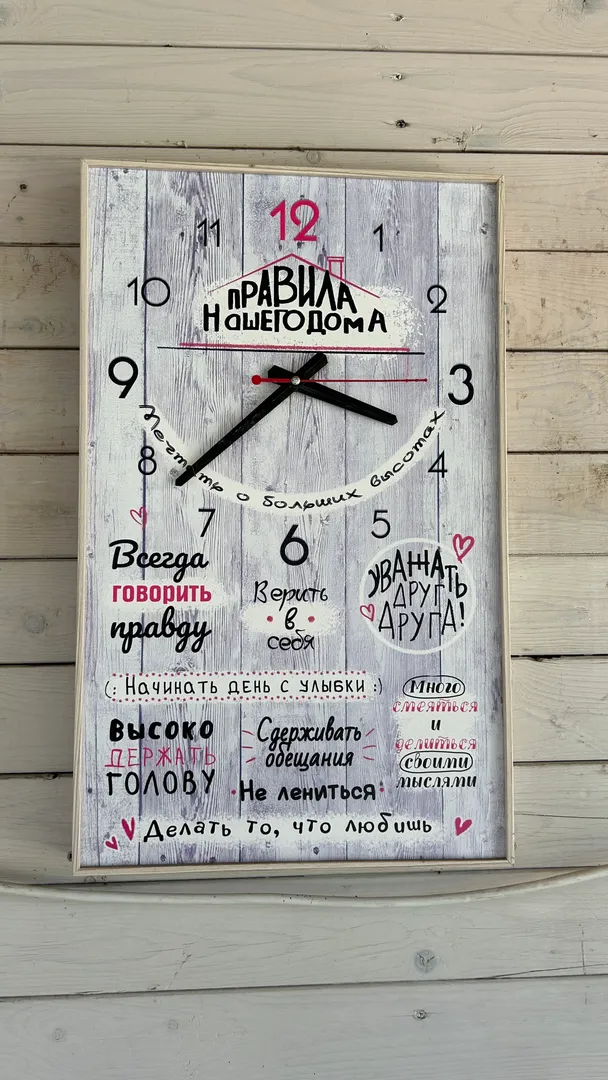 12
11
1
10
2
ПРАВИЛА
НАШЕГО ДОМА
9
3
Мечтать о больших высотах
8
4
7
5
6
Всегда
говорить
правду
Верить
в
себя
УВАЖАТЬ
ДРУГ
ДРУГА!
(: Начинать день с улыбки :)
Много
смеяться
и
делиться
своими
мыслями
ВЫСОКО
ДЕРЖАТЬ
ГОЛОВУ
Сдерживать
обещания
Не лениться
Делать то, что любишь